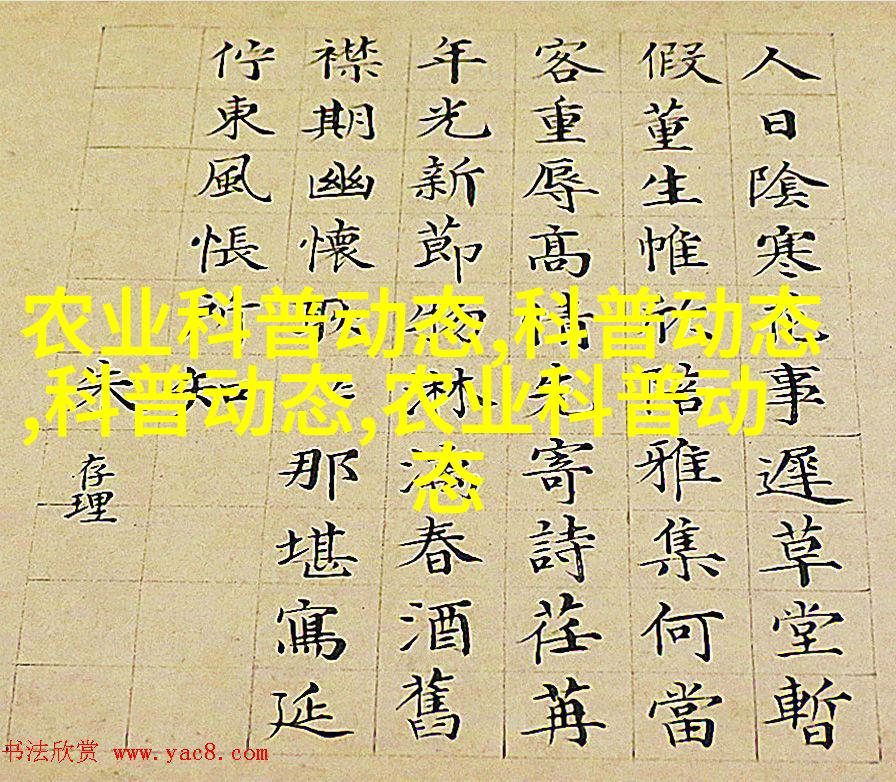 人日陰寒花事遲草堂暫
假董生帷欣陪雅集何當
客重辱高情先寄詩荏苒
年光新節物淋漓春酒舊
襟期幽懷那堪寫延
佇東風悵所知
朱存理
农业科普动态,科普动态
,科普动态,农业科普动
态
书法欣赏 www.yac8.com